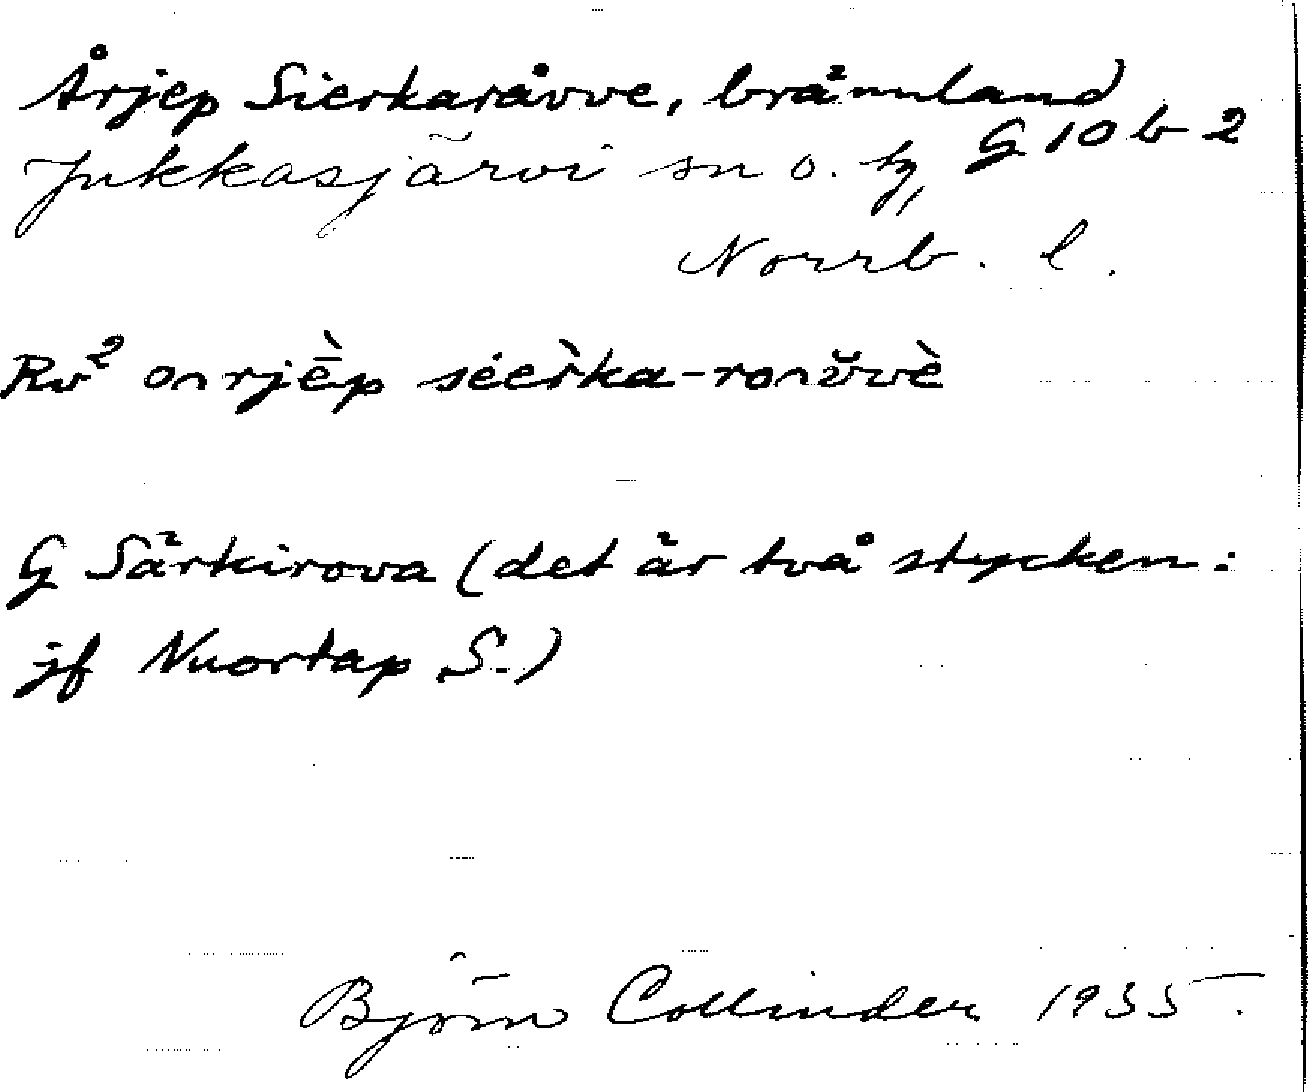 Årjep Sierkaråvve, brännland
G 10 b 2
Jukkasjärvi sn o. tg,
Norrb. l.
Rv² onrjēp̀ séer̀ka-ronv̆vè
G Särkirova (det är två stycken:
jf Nuortap S.)
Björn Collinder 1935.